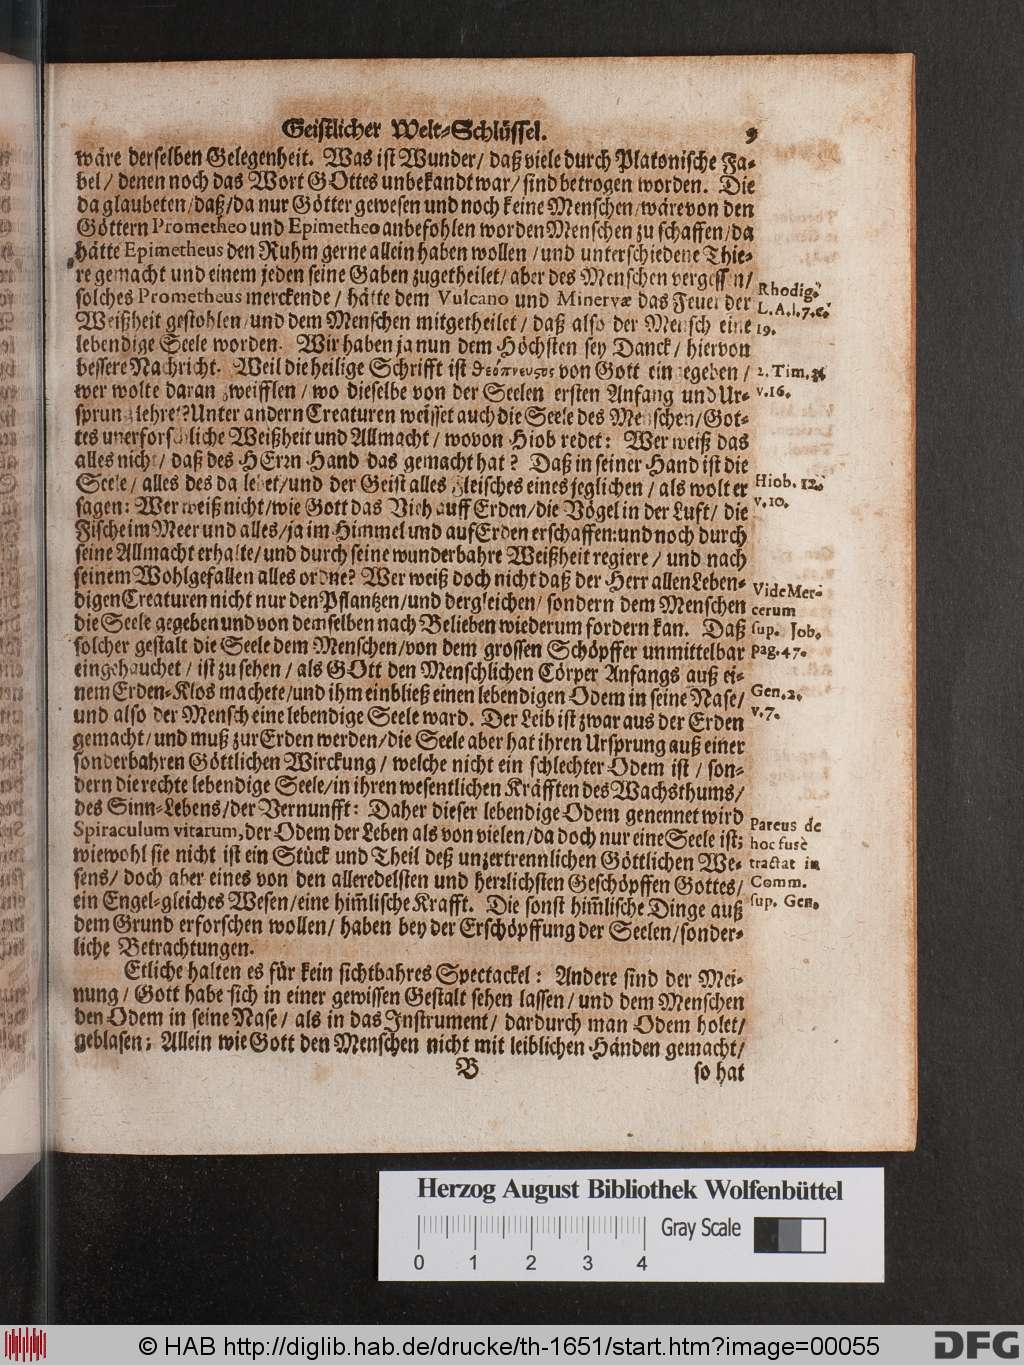 Geistlicher Welt-Schlüssel. 9
wäre derselben Gelegenheit. Was ist Wunder/ daß viele durch Platonische Fa-
bel/ denen noch das Wort GOttes unbekandt war/ sind betrogen worden. Die
da glaubeten/ daß/ da nur Götter gewesen und noch keine Menschen/ wäre von den
Göttern Prometheo und Epimetheo anbefohlen worden Menschen zu schaffen/ da
hätte Epimetheus den Ruhm gerne allein haben wollen/ und unterschiedene Thie-
re gemacht und einem jeden seine Gaben zugetheilet/ aber des Menschen vergessen/
solches Prometheus merckende/ hätte dem Vulcano und Minervæ das Feuer der
Weißheit gestohlen/ und dem Menschen mitgetheilet/ daß also der Mensch eine
lebendige Seele worden. Wir haben ja nun dem Höchsten sey Danck/ hiervon
bessere Nachricht. Weil die heilige Schrifft ist θεόπνευςος von Gott eingegeben/
wer wolte daran zweifflen/ wo dieselbe von der Seelen ersten Anfang und Ur-
sprung lehret? Unter andern Creaturen weisset auch die Seele des Menschen/ Got-
tes unerforschliche Weißheit und Allmacht/ wovon Hiob redet: Wer weiß das
alles nicht/ daß des HErrn Hand das gemacht hat? Daß in seiner Hand ist die
Seele/ alles des da lebet/ und der Geist alles Fleisches eines jeglichen/ als wolt er
sagen: Wer weiß nicht/ wie Gott das Vieh auff Erden/ die Vögel in der Luft/ die
Fische im Meer und alles/ ja im Himmel und auf Erden erschaffen: und noch durch
seine Allmacht erhalte/ und durch seine wunderbahre Weißheit regiere/ und nach
seinem Wohlgefallen alles ordne? Wer weiß doch nicht daß der Herr allen Leben-
digen Creaturen nicht nur den Pflantzen/ und dergleichen/ sondern dem Menschen
die Seele gegeben und von demselben nach Belieben wiederum fordern kan. Daß
solcher gestalt die Seele dem Menschen/ von dem grossen Schöpffer unmittelbar
eingehauchet/ ist zu sehen/ als GOtt den Menschlichen Cörper Anfangs auß ei-
nem Erden-Klos machete/ und ihm einbließ einen lebendigen Odem in seine Nase/
und also der Mensch eine lebendige Seele ward. Der Leib ist zwar aus der Erden
gemacht/ und muß zur Erden werden/ die Seele aber hat ihren Ursprung auß einer
sonderbahren Göttlichen Wirckung/ welche nicht ein schlechter Odem ist/ son-
dern die rechte lebendige Seele/ in ihren wesentlichen Kräfften des Wachsthums/
des Sinn-Lebens/ der Vernunfft: Daher dieser lebendige Odem genennet wird
Spiraculum vitarum, der Odem der Leben als von vielen/ da doch nur eine Seele ist;
wiewohl sie nicht ist ein Stück und Theil deß unzertrennlichen Göttlichen We-
sens/ doch aber eines von den alleredelsten und herrlichsten Geschöpffen Gottes/
ein Engel-gleiches Wesen/ eine him̄lische Krafft. Die sonst him̄lische Dinge auß
dem Grund erforschen wollen/ haben bey der Erschöpffung der Seelen/ sonder-
liche Betrachtungen.
Etliche halten es für kein sichtbahres Spectackel: Andere sind der Mei-
nung/ Gott habe sich in einer gewissen Gestalt sehen lassen/ und dem Menschen
den Odem in seine Nase/ als in das Instrument/ dardurch man Odem holet/
geblasen; Allein wie Gott den Menschen nicht mit leiblichen Händen gemacht/
B so hat
Rhodig.
L. A. l. 7. c.
19.
2. Tim. 3
v. 16.
Hiob. 12.
v. 10.
Vide Mer-
cerum
sup. Job.
pag. 47.
Gen. 2.
v. 7.
Pareus de
hoc fusè
tractat in
Comm.
sup. Gen.
Herzog August Bibliothek Wolfenbüttel
Gray Scale
0 1 2 3 4
© HAB http://diglib.hab.de/drucke/th-1651/start.htm?image=00055
DFG